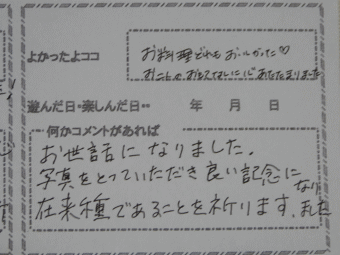 よかったよココ
お料理どれもおいしかった♡
おもてなしに あたたまりました
遊んだ日・楽しんだ日・・ 年 月 日
何かコメントがあれば
お世話になりました。
写真をとっていただき良い記念になり
在来種であることを祈ります。また